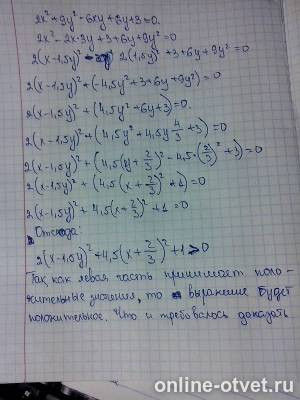 2x² + 9y² - 6xy + 6y + 3 = 0.
2x² - 2x·3y + 3 + 6y + 9y² = 0
2(x - 1,5y)² 2(1,5y)² + 3 + 6y + 9y² = 0
2(x - 1,5y)² + (-4,5y² + 3 + 6y + 9y²) = 0
2(x - 1,5y)² + (4,5y² + 6y + 3) = 0.
2(x - 1,5y)² + (4,5y² + 4,5y 4/3 + 3) = 0
2(x - 1,5y)² + (4,5(y + 2/3)² - 4,5·(2/3)² + 3) = 0
2(x - 1,5y)² + (4,5(x + 2/3)² + 1) = 0
2(x - 1,5y)² + 4,5(x + 2/3)² + 1 = 0
Отсюда:
2(x - 1,5y)² + 4,5(x + 2/3)² + 1 > 0
Так как левая часть принимает поло-
жительные значения, то выражение будет
положительное. Что и требовалось доказать
online-otvet.ru